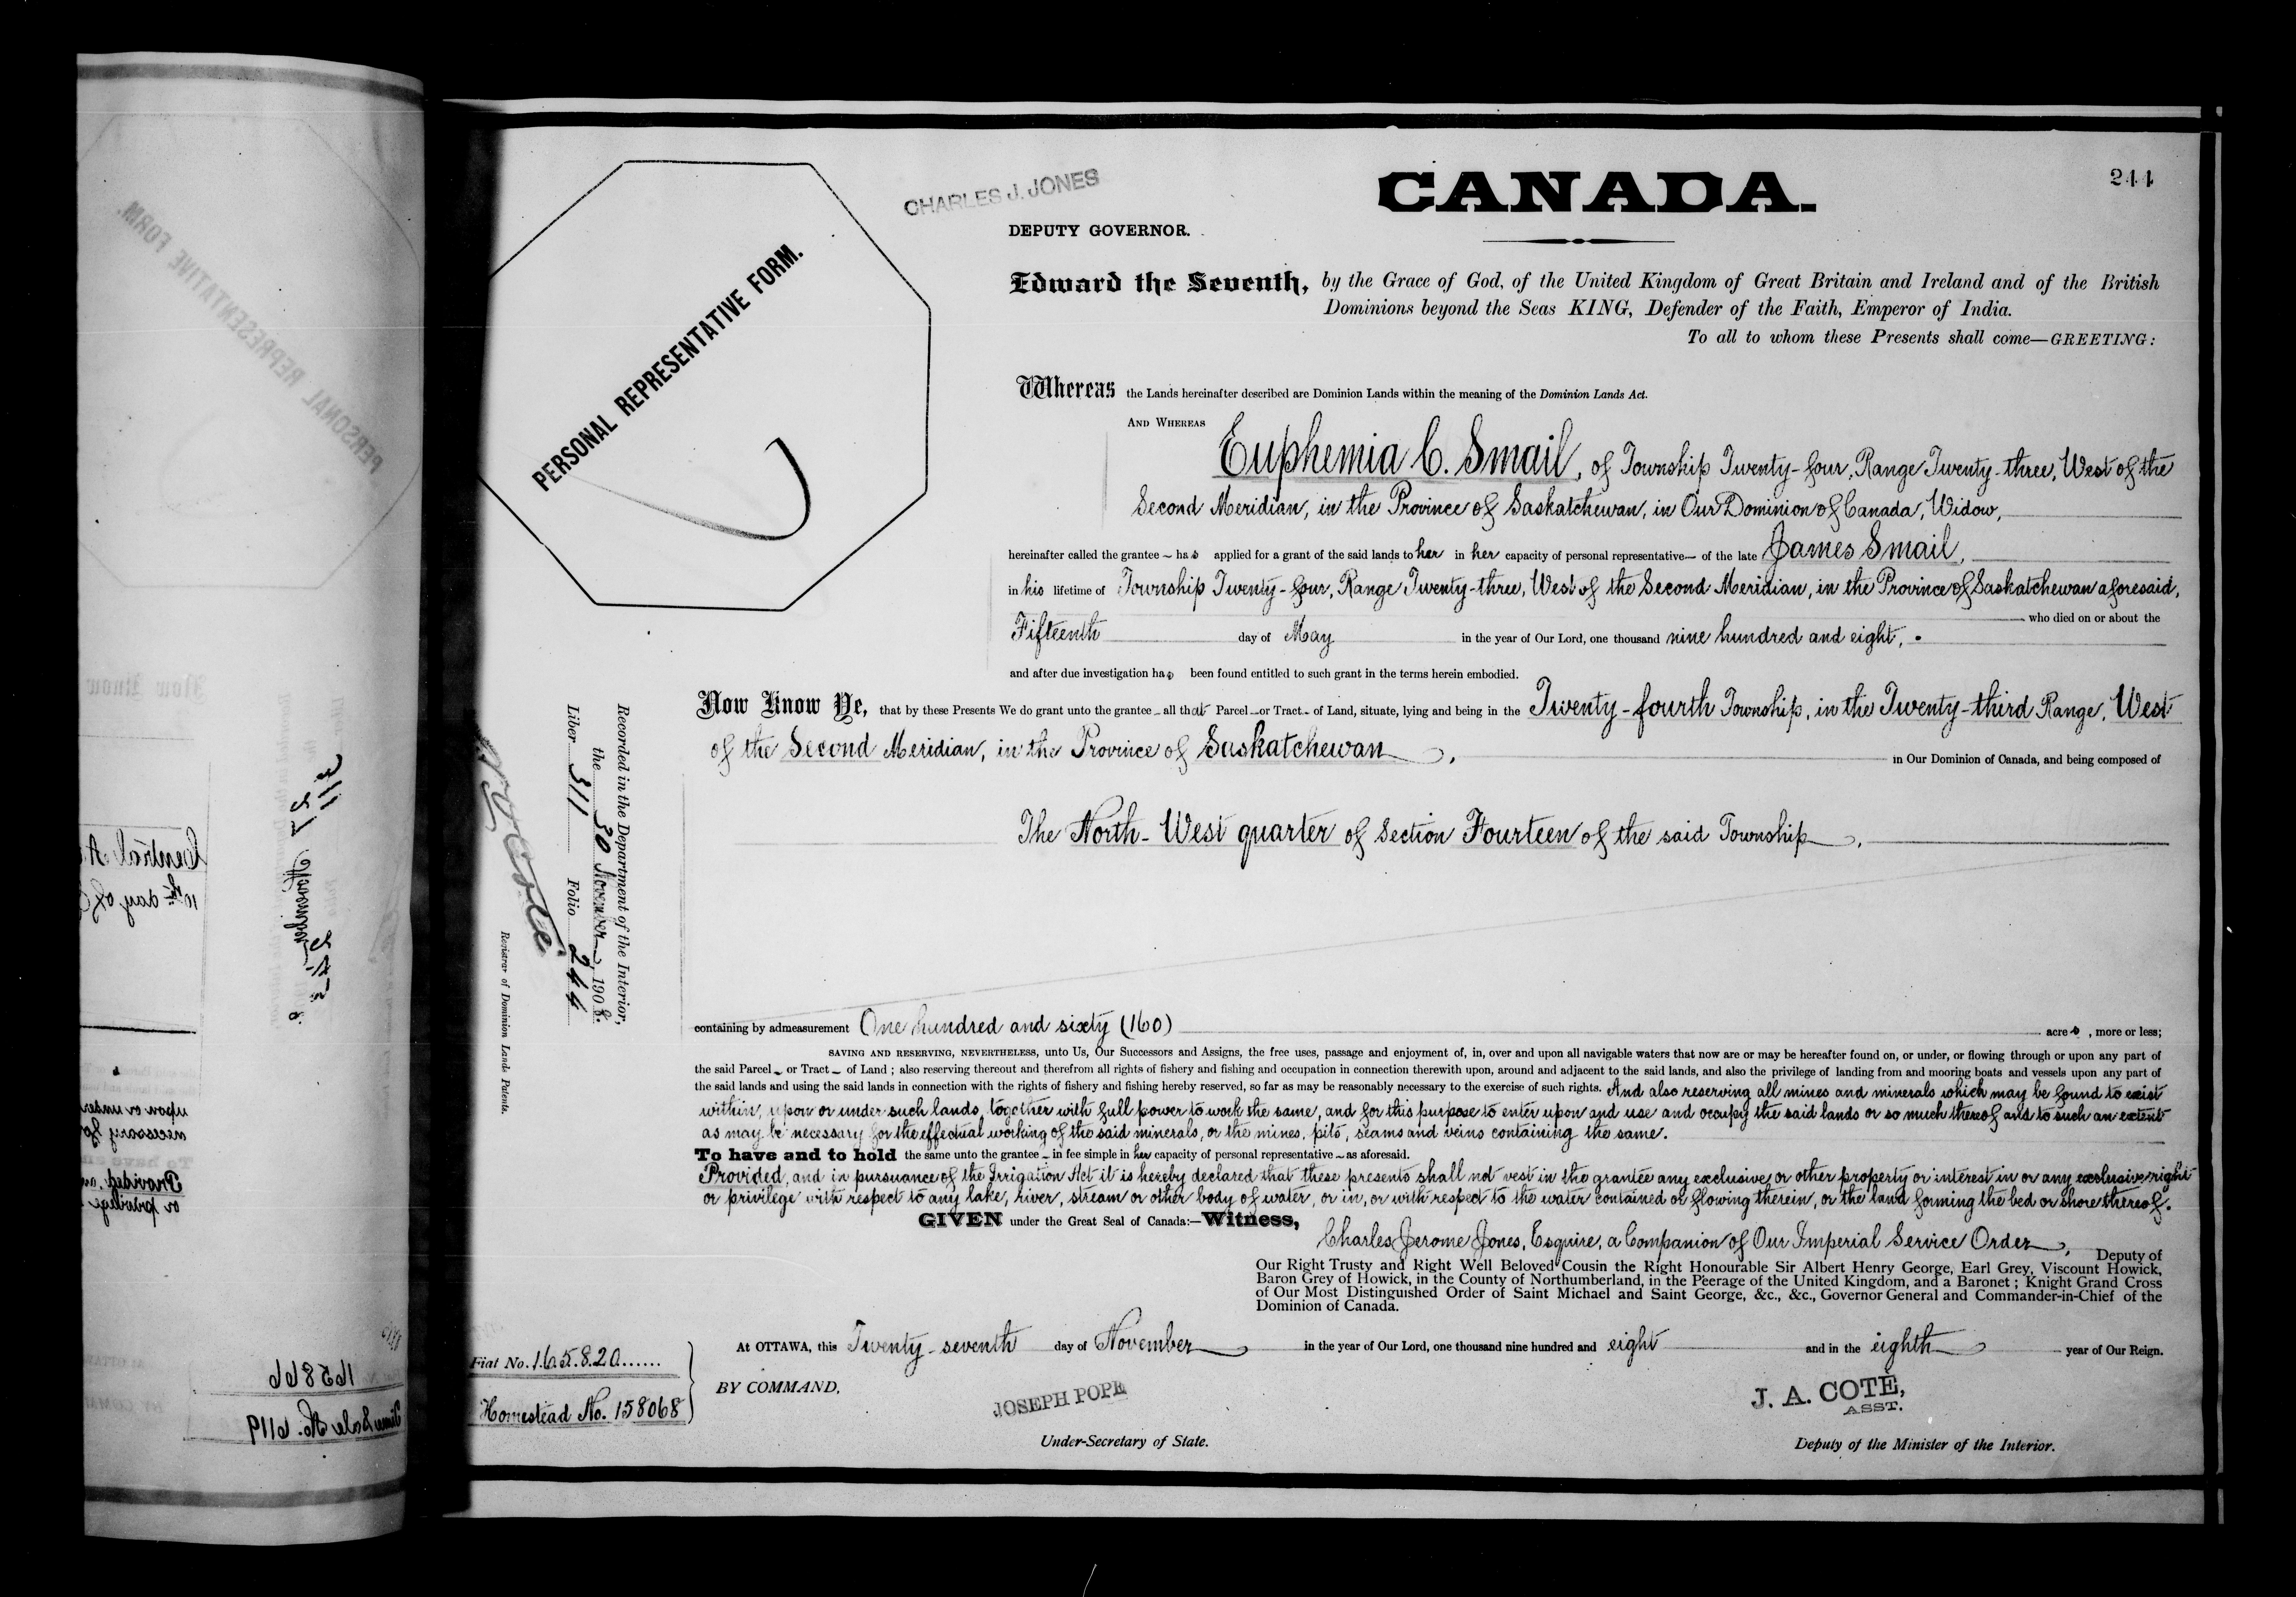 244
CANADA.
CHARLES J. JONES
DEPUTY GOVERNOR.
PERSONAL REPRESENTATIVE FORM.
Edward the Seventh, by the Grace of God, of the United Kingdom of Great Britain and Ireland and of the British
Dominions beyond the Seas KING, Defender of the Faith, Emperor of India.
To all to whom these Presents shall come—GREETING:
Whereas the Lands hereinafter described are Dominion Lands within the meaning of the Dominion Lands Act.
AND WHEREAS
Euphemia C. Smail, of Township Twenty-four, Range Twenty-three, West of the
Second Meridian, in the Province of Saskatchewan, in Our Dominion of Canada, Widow,
hereinafter called the grantee has applied for a grant of the said lands to her in her capacity of personal representative of the late James Smail,
in his lifetime of Township Twenty-four, Range Twenty-three, West of the Second Meridian, in the Province of Saskatchewan aforesaid,
who died on or about the
Fifteenth day of May in the year of Our Lord, one thousand nine hundred and eight,
and after due investigation has been found entitled to such grant in the terms herein embodied.
Now Know Ye, that by these Presents We do grant unto the grantee all that Parcel or Tract of Land, situate, lying and being in the Twenty-fourth Township, in the Twenty-third Range, West
of the Second Meridian, in the Province of Saskatchewan, in Our Dominion of Canada, and being composed of
The North-West quarter of Section Fourteen of the said Township,
containing by admeasurement One hundred and sixty (160) acres, more or less;
SAVING AND RESERVING, NEVERTHELESS, unto Us, Our Successors and Assigns, the free uses, passage and enjoyment of, in, over and upon all navigable waters that now are or may be hereafter found on, or under, or flowing through or upon any part of
the said Parcel or Tract of Land; also reserving thereout and therefrom all rights of fishery and fishing and occupation in connection therewith upon, around and adjacent to the said lands, and also the privilege of landing from and mooring boats and vessels upon any part of
the said lands and using the said lands in connection with the rights of fishery and fishing hereby reserved, so far as may be reasonably necessary to the exercise of such rights. And also reserving all mines and minerals which may be found to exist
within, upon or under such lands, together with full power to work the same, and for this purpose to enter upon and use and occupy the said lands or so much thereof and to such an extent
as may be necessary for the effectual working of the said minerals, or the mines, pits, seams and veins containing the same.
To have and to hold the same unto the grantee in fee simple in her capacity of personal representative as aforesaid.
Provided, and in pursuance of the Irrigation Act it is hereby declared that these presents shall not vest in the grantee any exclusive or other property or interest in or any exclusive right
or privilege with respect to any lake, river, stream or other body of water, or in, or with respect to the water contained or flowing therein, or the land forming the bed or shore thereof.
GIVEN under the Great Seal of Canada:—Witness,
Charles Jerome Jones, Esquire, a Companion of Our Imperial Service Order, Deputy of
Our Right Trusty and Right Well Beloved Cousin the Right Honourable Sir Albert Henry George, Earl Grey, Viscount Howick,
Baron Grey of Howick, in the County of Northumberland, in the Peerage of the United Kingdom, and a Baronet; Knight Grand Cross
of Our Most Distinguished Order of Saint Michael and Saint George, &c., &c., Governor General and Commander-in-Chief of the
Dominion of Canada.
At OTTAWA, this Twenty-seventh day of November in the year of Our Lord, one thousand nine hundred and eight and in the eighth year of Our Reign.
BY COMMAND,
JOSEPH POPE
Under-Secretary of State.
J. A. COTÉ,
ASST.
Deputy of the Minister of the Interior.
Fiat No. 165820
Homestead No. 158068
Recorded in the Department of the Interior,
the 30 November, 1908.
Liber 311 Folio 244
Registrar of Dominion Lands Patents.
PERSONAL REPRESENTATIVE FORM.
Now Know
Central
10th day of
311
27
November
upon or under
necessary for
To have an
Provided, an
or privilege
165866
Sale No. 6119